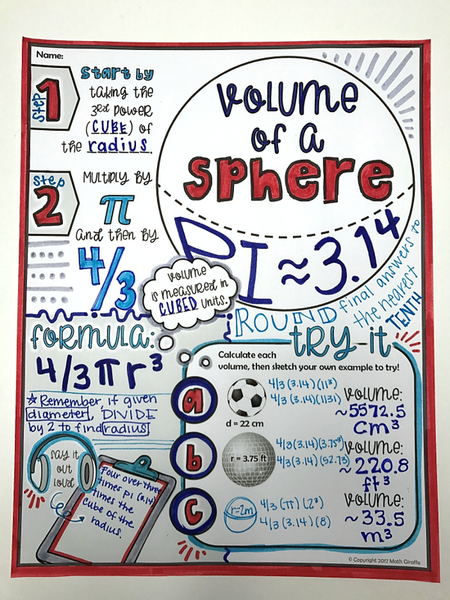 Name:
Step 1
Start by
taking the
3rd power
(CUBE) of
the radius.
Step 2
Multiply by
π
and then by
4/3
Volume
of a
sphere
PI ≈ 3.14
Volume
is measured in
CUBED units.
ROUND final answers to
the nearest
TENTH
Formula:
4/3πr³
☆Remember, if given
diameter, DIVIDE
by 2 to find radius
Say it
out
loud
Four over three
times pi (3.14)
times the
cube of the
radius.
Try it
Calculate each
volume, then sketch your own example to try!
a
d = 22 cm
4/3 (3.14)(11³)
4/3 (3.14)(1131)
Volume:
~5572.5
cm³
b
r = 3.75 ft
4/3 (3.14)(3.75³)
4/3 (3.14)(52.73)
Volume:
~220.8
ft³
c
r=2m
4/3 (π) (2³)
4/3 (3.14) (8)
Volume:
~33.5
m³
© Copyright 2017 Math Giraffe